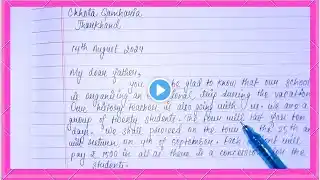 Chhota Gamharia
Jharkhand
14th August 2024
My dear father,
you be glad to know that our school
is organising an trip during the vacation
Our history teacher is also going with us. We are a
group of twenty students. The tour will last for ten
days. We shall proceed on the tour on the 25th an
will return on 4th of September. Each student will
pay ₹ 1500 in all as there is a concession for the
students.